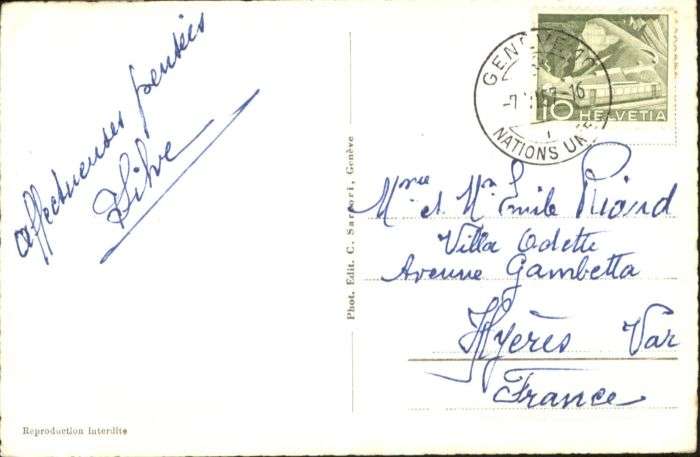 affectueuses pensées
Silve
Reproduction Interdite
Phot. Edit. C. Sartori, Genève
GENÈVE 10
-7. 57-16
NATIONS UNIES
10 HELVETIA
Mme et Mr Emile Riard
Villa Odette
Avenue Gambetta
Hyères Var
France